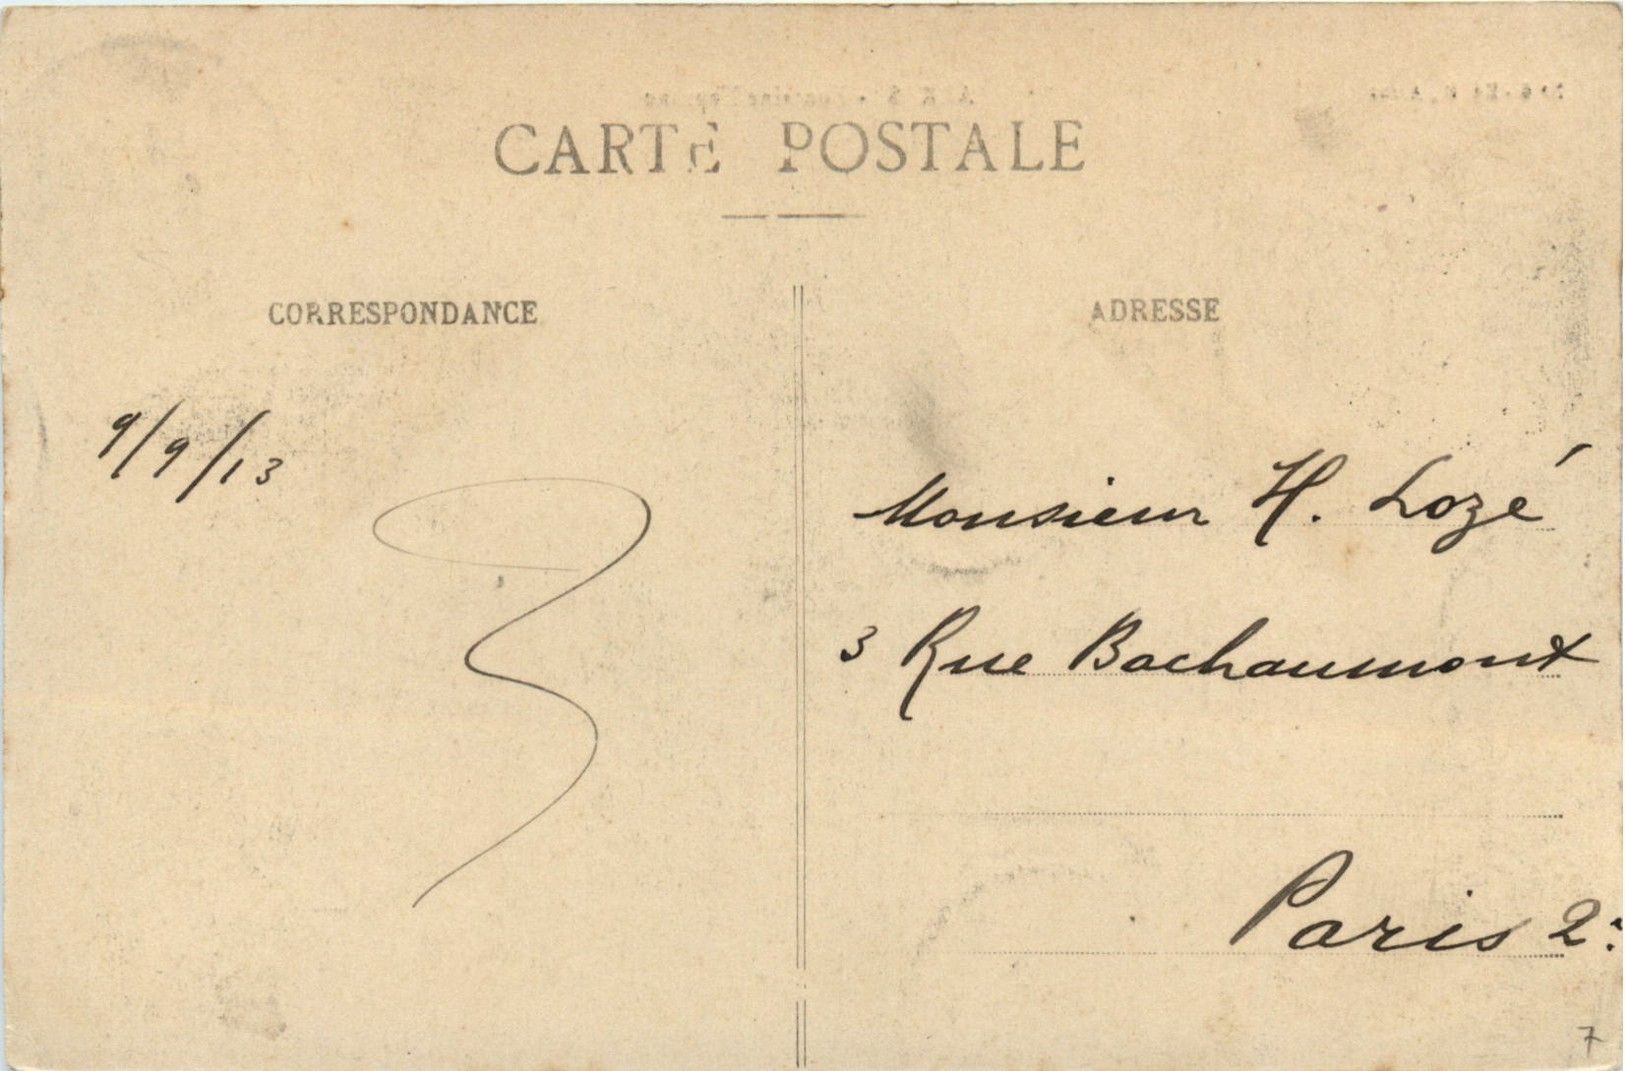 CARTE POSTALE
CORRESPONDANCE
ADRESSE
9/9/13
Monsieur H. Lozé
3 Rue Bachaumont
Paris 2e
7